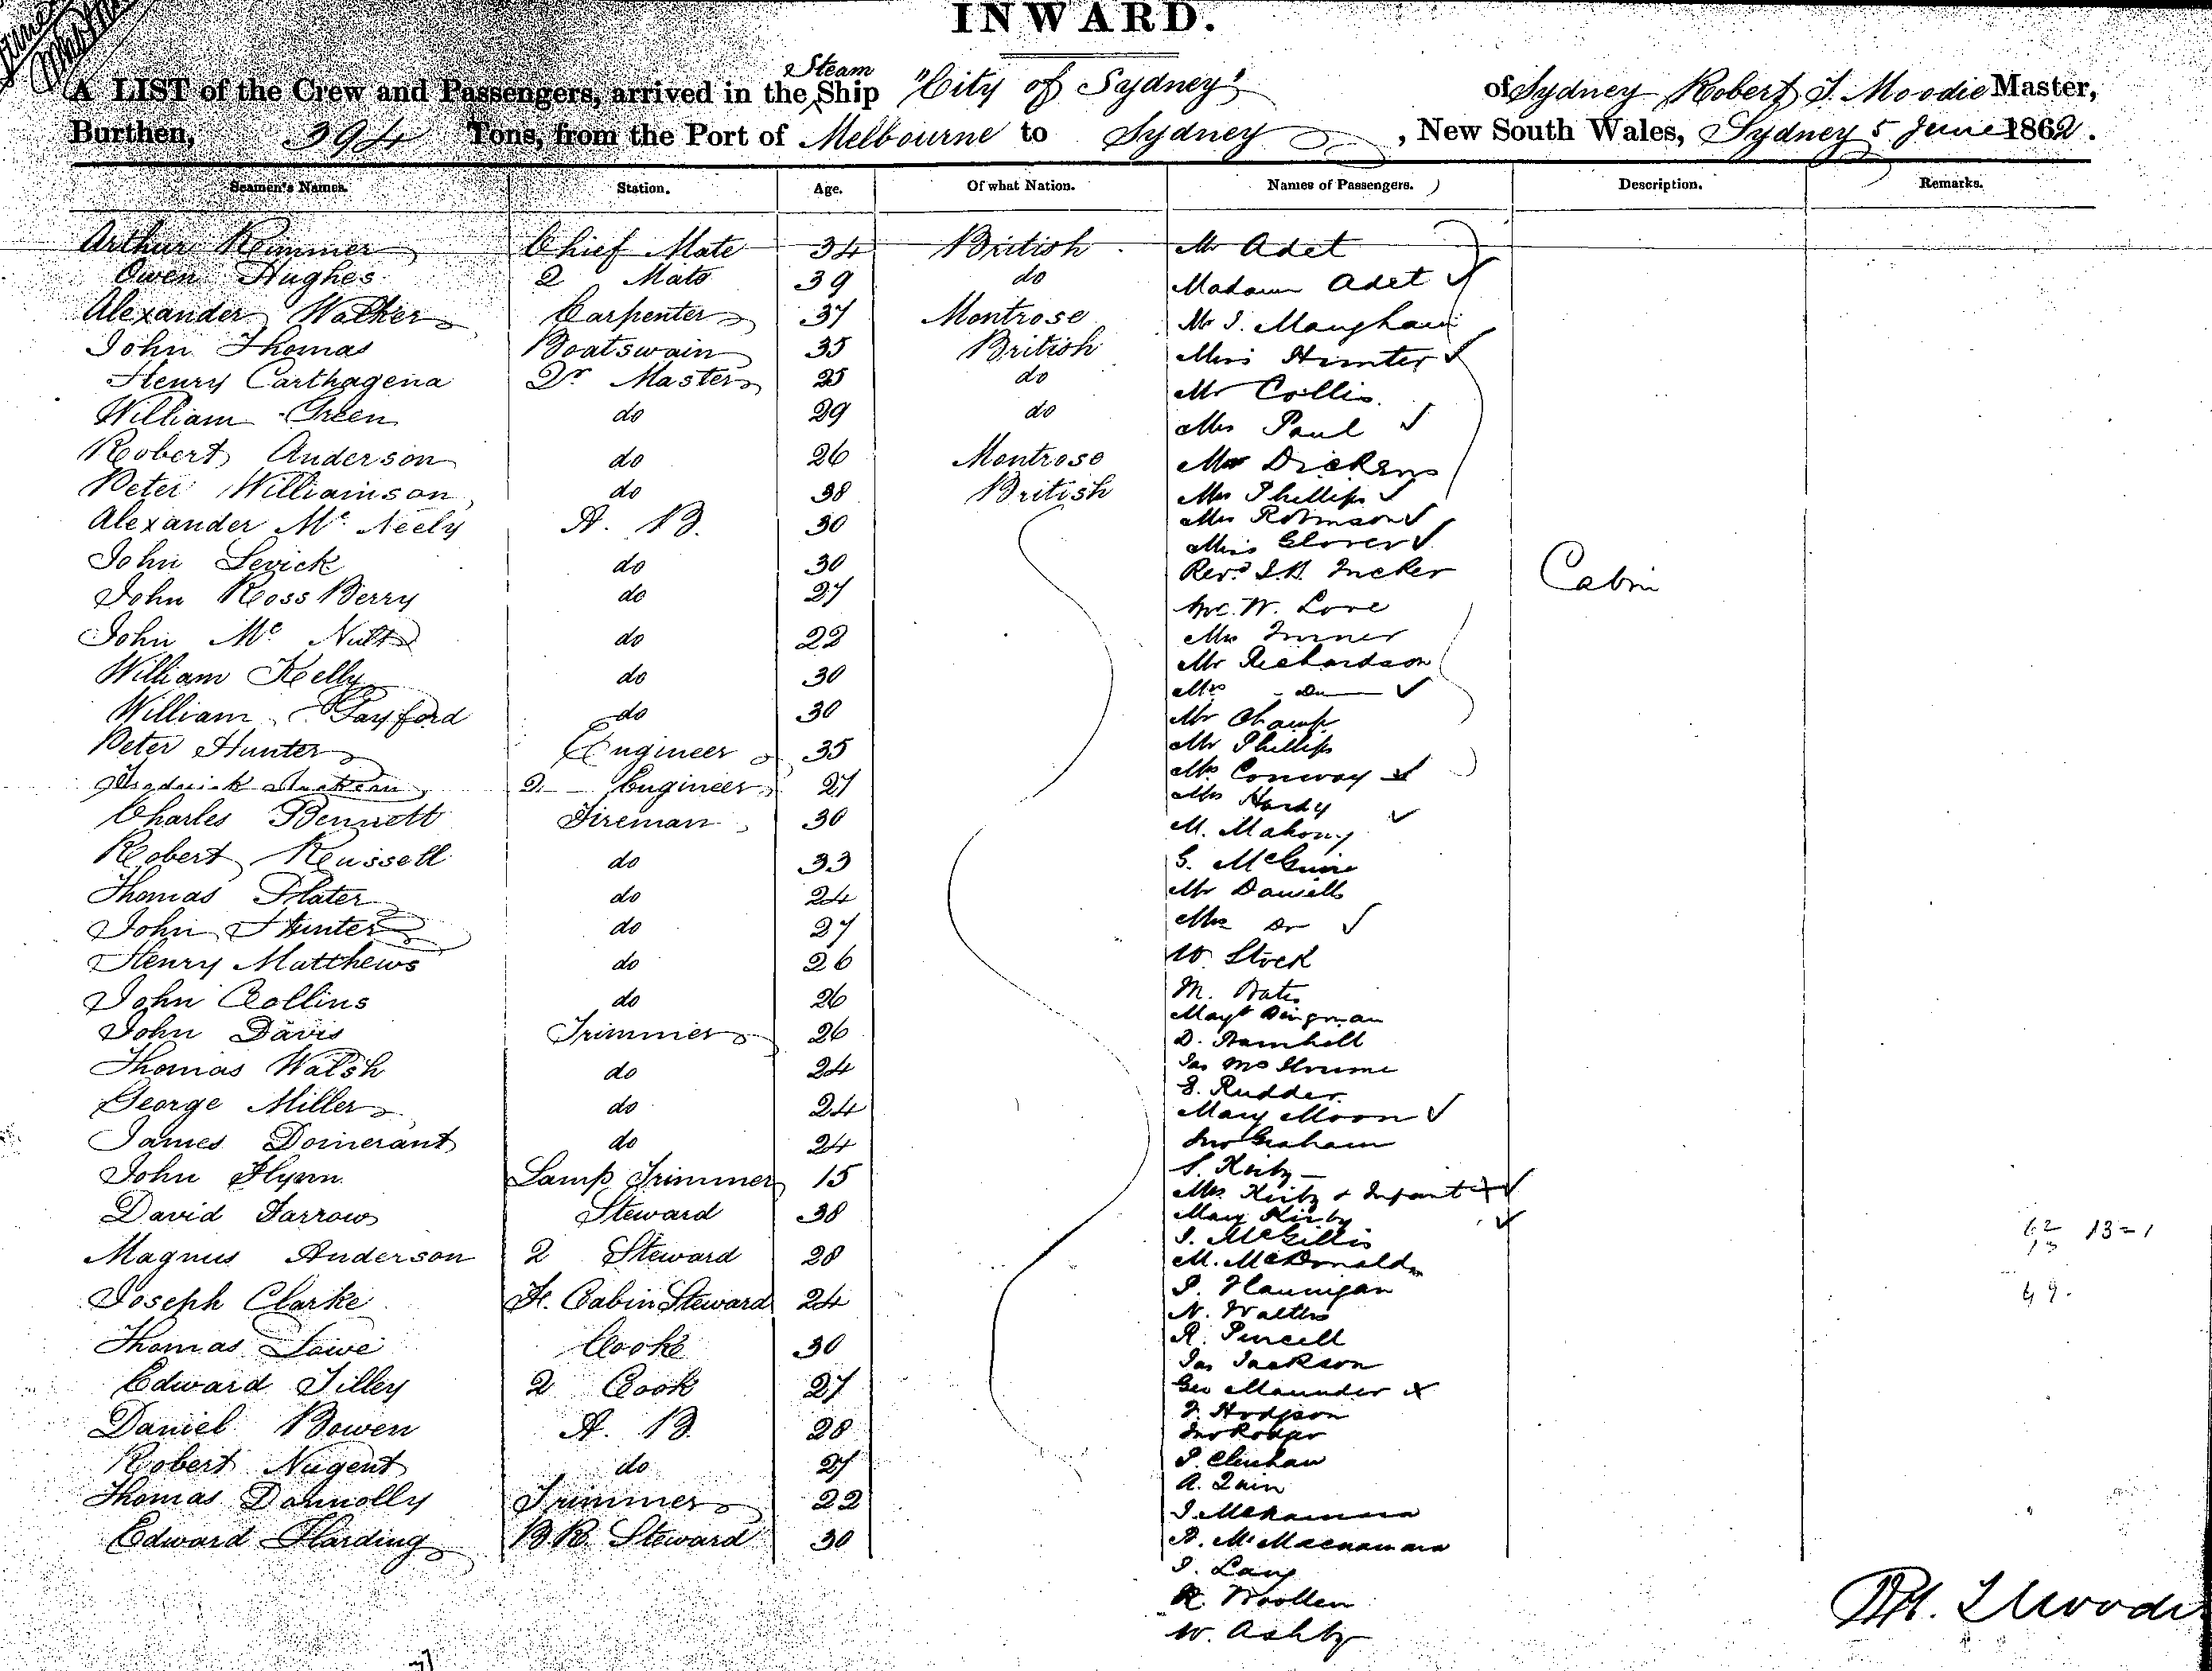 INWARD.
A LIST of the Crew and Passengers, arrived in the Steam Ship "City of Sydney" of Sydney Robert T. Moodie Master,
Burthen, 394 Tons, from the Port of Melbourne to Sydney, New South Wales, Sydney 5 June 1862.
Seamen's Names. Station. Age. Of what Nation. Names of Passengers. Description. Remarks.
Arthur Rimmer Chief Mate 34 British Mr Adet
Owen Hughes 2 Mate 39 do Madam Adet
Alexander Walker Carpenter 37 Montrose Mr J. Maugham
John Thomas Boatswain 35 British Miss Hunter
Henry Carthagena Qr Master 25 do Mr Collis
William Green do 29 do Mrs Paul
Robert Anderson do 26 Montrose Mr Dickens
Peter Williamson do 38 British Mrs Phillips
Alexander Mc Neely A. B. 30 Mrs Robinson
Miss Glover
John Levick do 30 Revd J.B. Tucker
Cabin
John Ross Berry do 27 W. Love
John Mc Nult do 22 Mrs Turner
William Kelly do 30 Mr Richardson
Mrs Do
William Gayford do 30 Mr Champ
Peter Hunter Engineer 35 Mr Phillips
Frederick 2 Engineer 27 Mrs Conway
Charles Bennett Fireman 30 Mrs Hardy
M. Mahony
Robert Russell do 33 G. McGuire
Thomas Slater do 24 Mr Daniells
John Hunter do 27 Mrs Do
Henry Matthews do 26 W. Stock
John Collins do 26 M. Bates
Margt Dingman
John Davis Trimmer 26 D. Bramhall
Thomas Walsh do 24 Jas
E. Rudder
George Miller do 24 Mary Moon
James Domerant do 24 Jno Graham
John Flynn Lamp Trimmer 15 S. Kirby
Mrs Kirby & Infant
David Farrow Steward 38 Mary Kirby
J. McGillis
62 13=1
13
Magnus Anderson 2 Steward 28 M. McDonald
49.
Joseph Clarke F. Cabin Steward 24 P. Flannigan
N. Walters
Thomas Lowe Cook 30 R. Purcell
Jas Jackson
Edward Tilley 2 Cook 27 Geo Maunder
F. Hodgson
Daniel Bowen A. B. 28 Jno Rodger
Robert Nugent do 27 P. Clenhan
A. Quin
Thomas Donnolly Trimmer 22 J.
Edward Harding B.R. Steward 30 B. McMacnamara
J. Lang
R. Woollen
W. Ashby
Rt. T Moodie